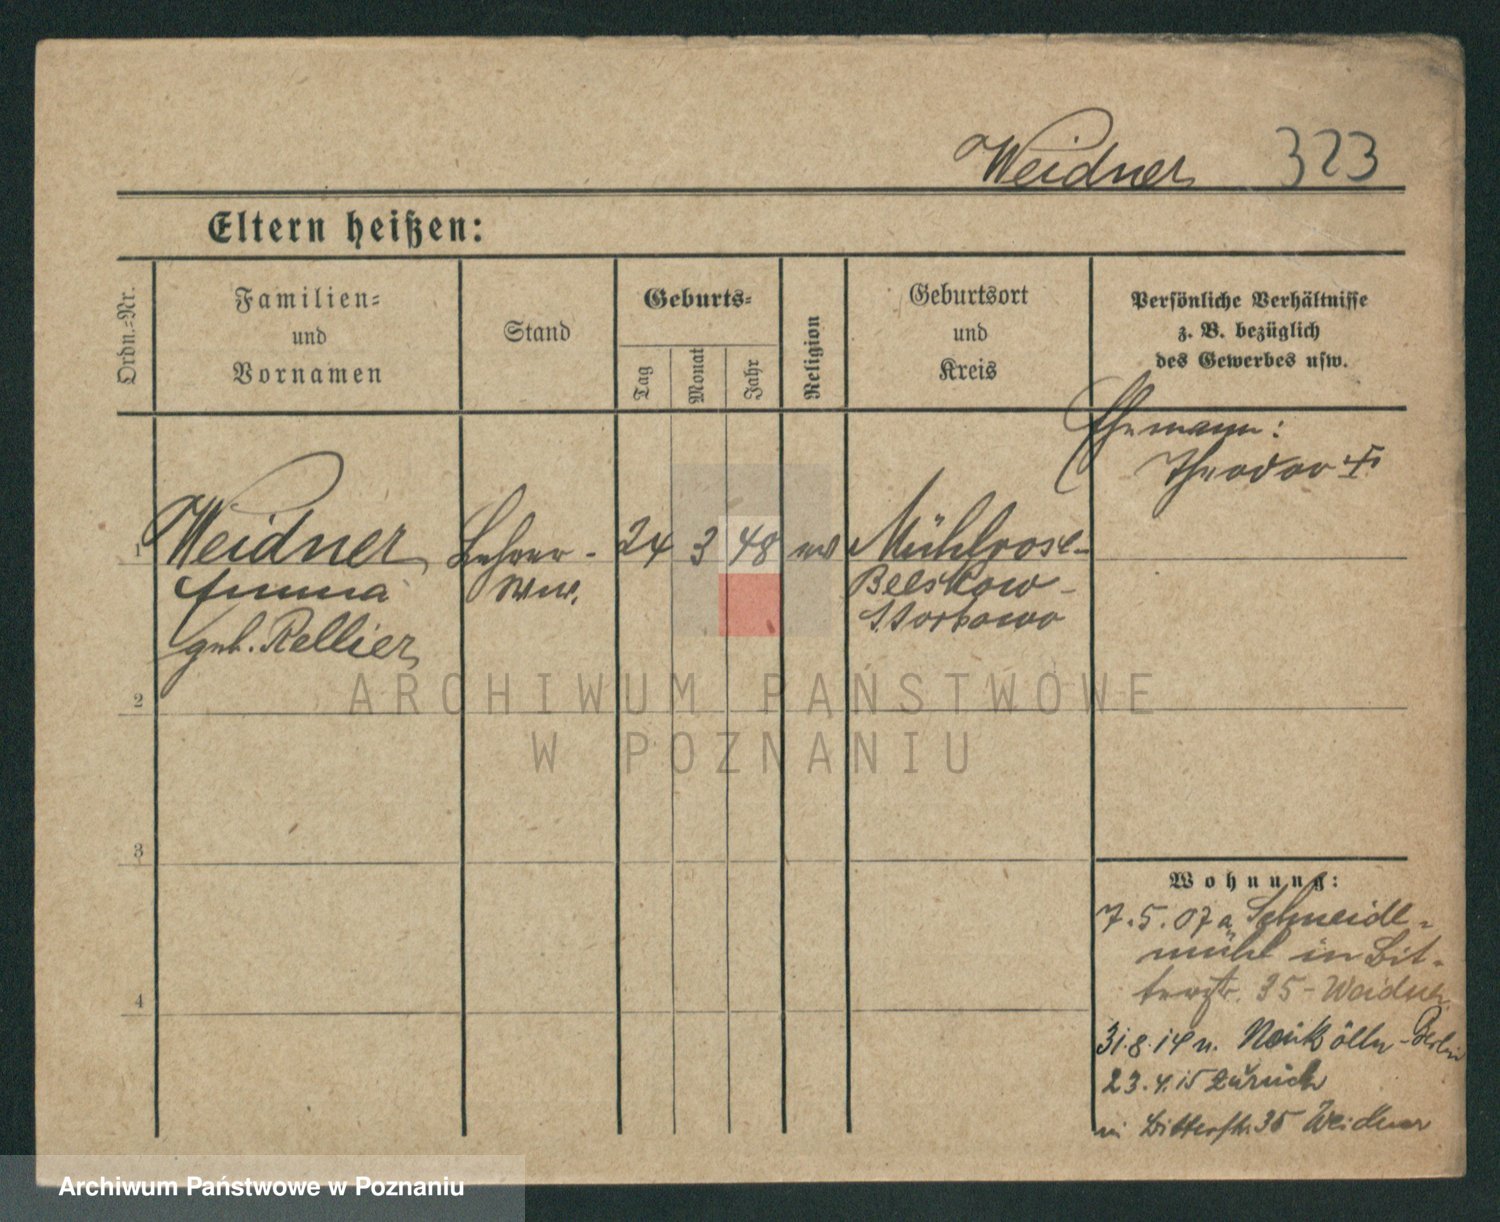 Weidner 323
Eltern heißen:
Ordn.=Nr.
Familien=
und
Vornamen
Stand
Geburts=
Tag
Monat
Jahr
Religion
Geburtsort
und
Kreis
Persönliche Verhältnisse
z. B. bezüglich
des Gewerbes usw.
Ehemann:
Theodor †
1 Weidner Lehrer- 24 3 48 ev Mühlrose-
Emma Ww. Beeskow-
geb. Rellier Storkowo
2
3
4
ARCHIWUM PAŃSTWOWE
W POZNANIU
Wohnung:
7.5.07 a Schneide-
mühl in Bit-
terstr. 35 - Weidner
31.8.14 n. Neukölln-Berlin
23.4.15 zurück
in Bitterstr. 35 Weidner
Archiwum Państwowe w Poznaniu